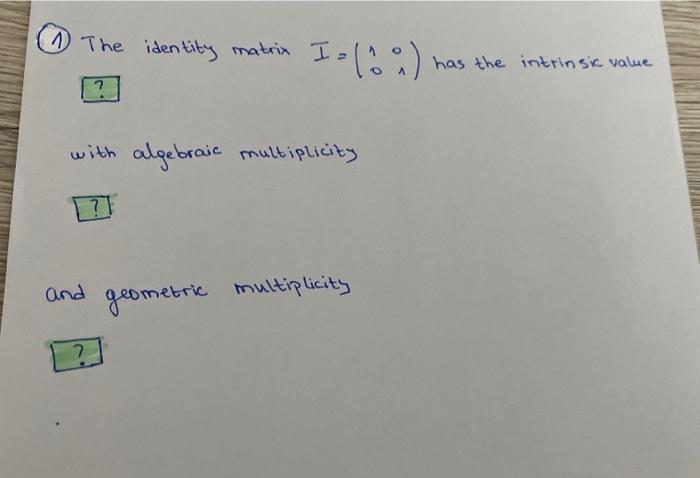 ① The identity matrix I = (1 0 0 1) has the intrinsic value
?
with algebraic multiplicity
?
and geometric multiplicity
?